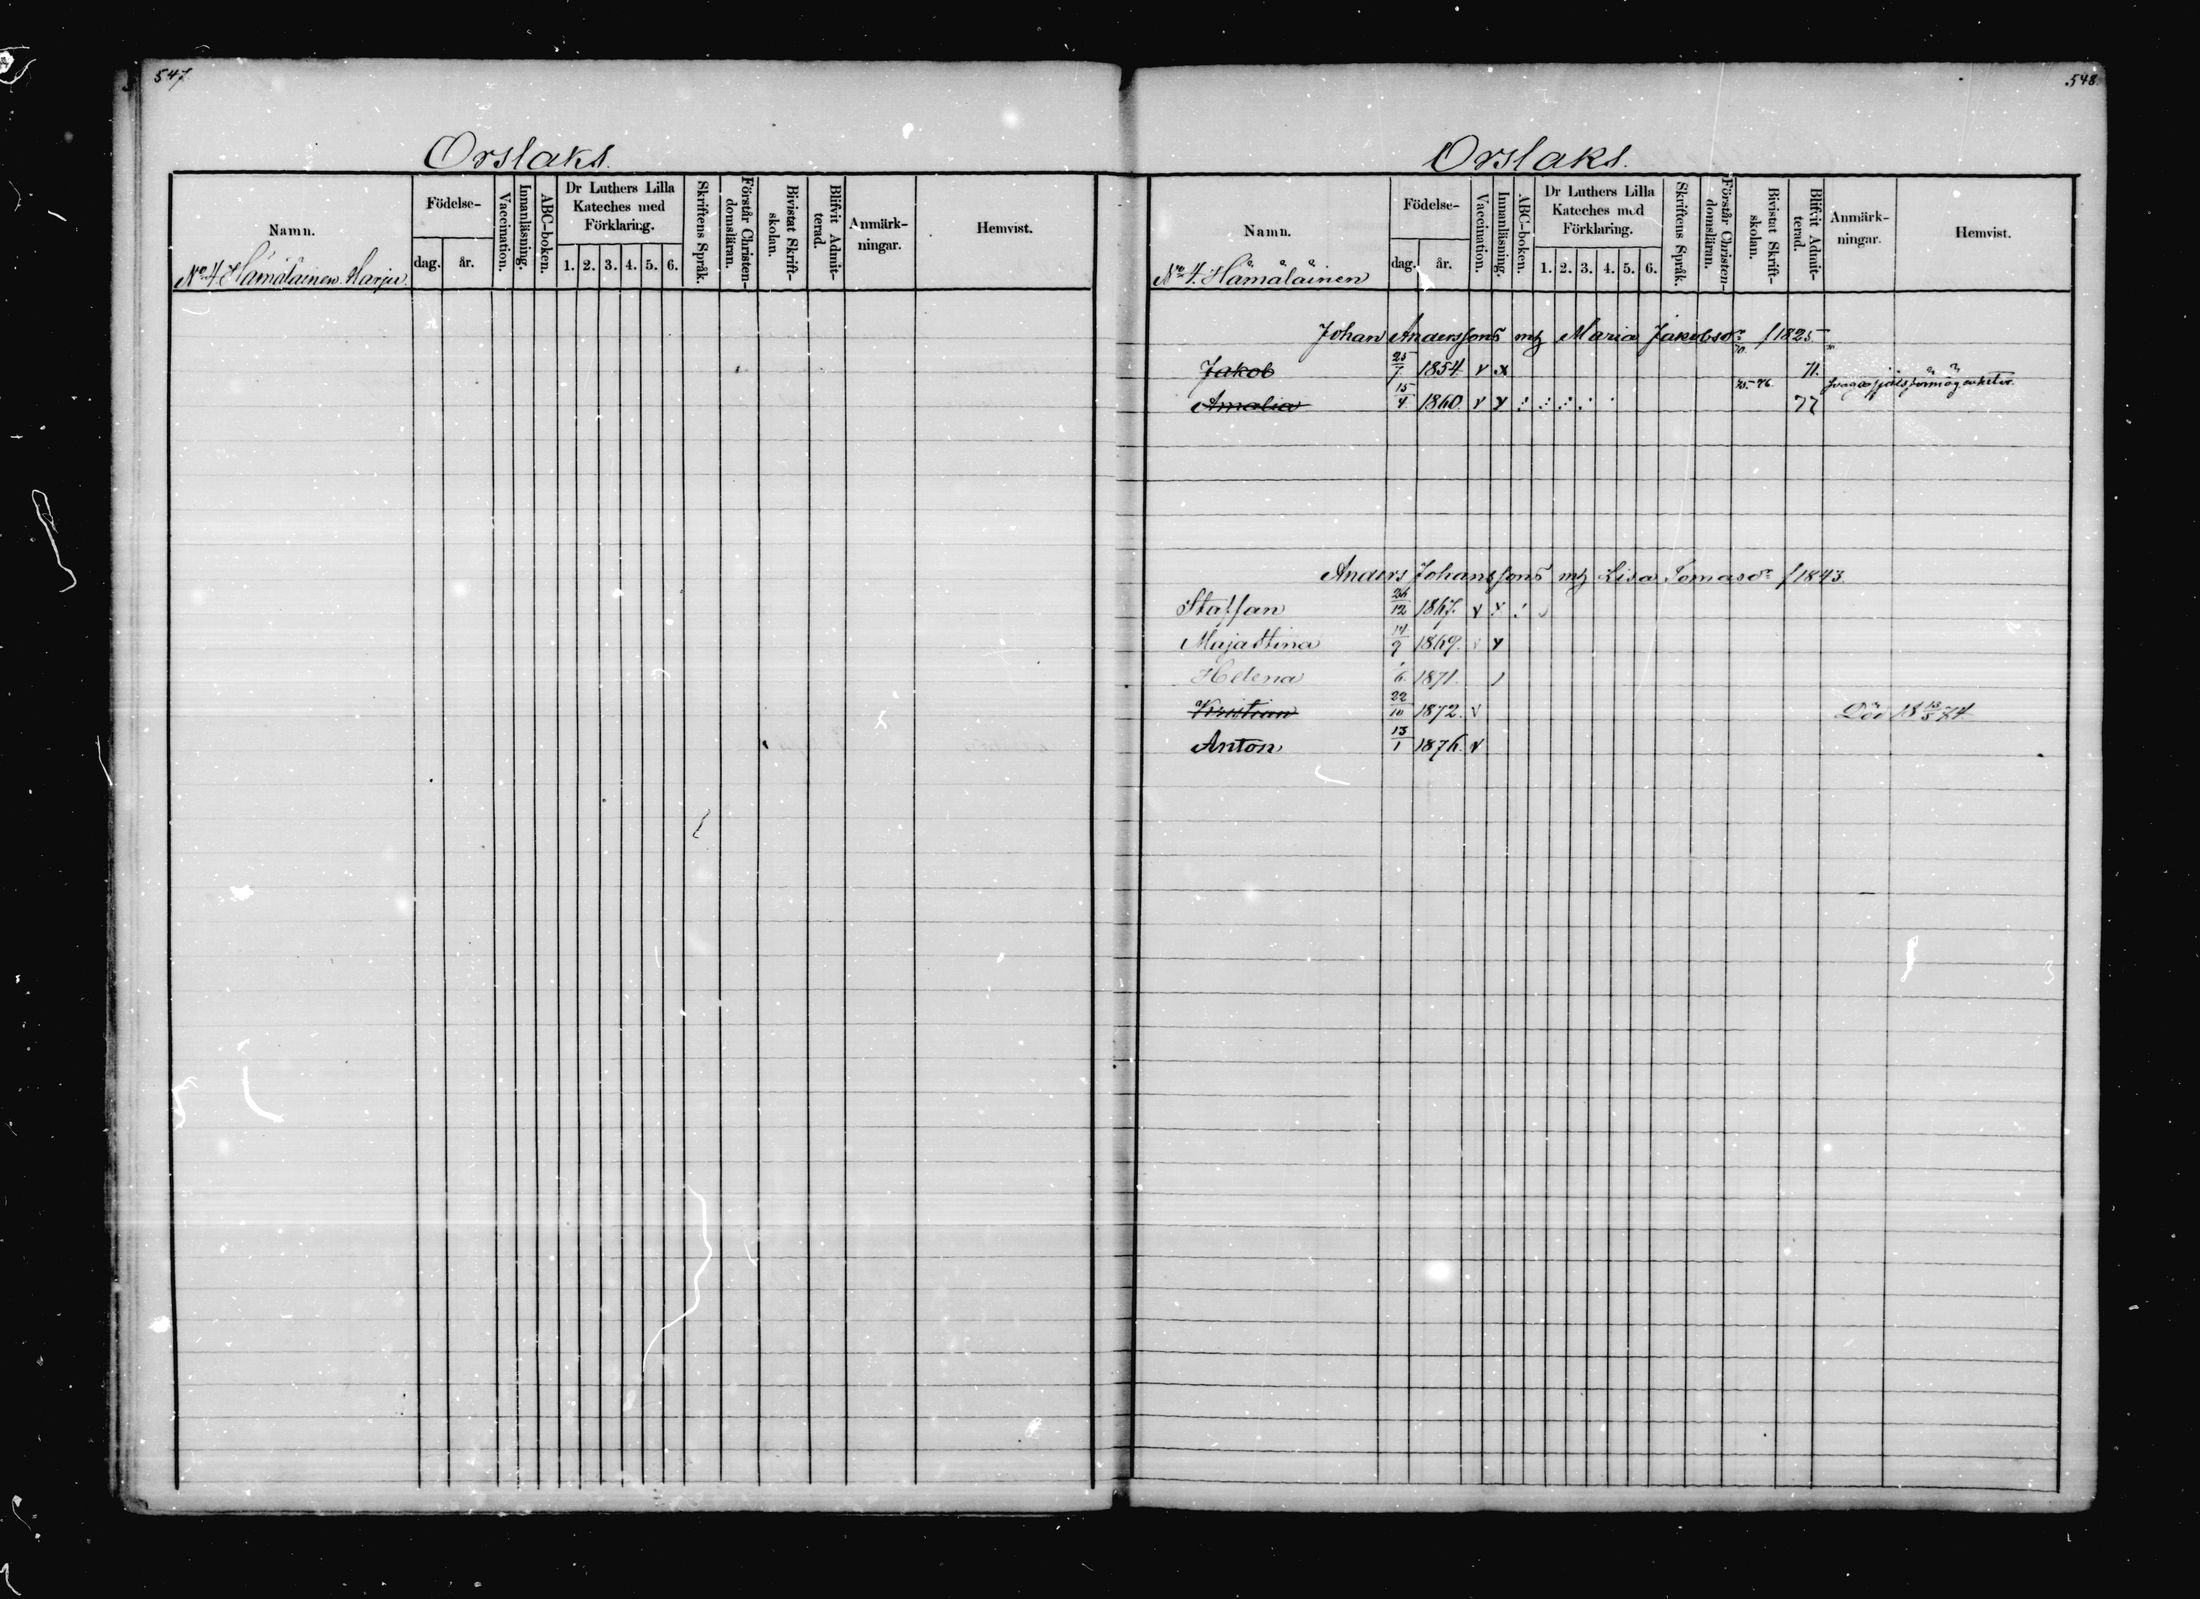 547.
Orslaks.
Namn.
Födelse-
dag.
år.
Vaccination.
Innanläsning.
ABC-boken.
Dr Luthers Lilla
Kateches med
Förklaring.
1. 2. 3. 4. 5. 6.
Skriftens Språk.
Förstår Christen-
domsläran.
Bivistat Skrift-
skolan.
Blifvit Admit-
terad.
Anmärk-
ningar.
Hemvist.
No 4 Hämäläinen Harju
548.
Orslaks.
Namn.
Födelse-
dag.
år.
Vaccination.
Innanläsning.
ABC-boken.
Dr Luthers Lilla
Kateches med
Förklaring.
1. 2. 3. 4. 5. 6.
Skriftens Språk.
Förstår Christen-
domsläran.
Bivistat Skrift-
skolan.
Blifvit Admit-
terad.
Anmärk-
ningar.
Hemvist.
No 4. Hämäläinen
Johan Anderssons Maria Jakobsdr f 1825
Jakob 25/7 1854 v x 70. 71.
Amalia 15/4 1860. v 75-76 77
Anders Johanssons Lisa Tomasdr f 1843.
Staffan 26/12 1867. v
Maja Stina 14/9 1869.
Helena 1/6 1871.
Kristian 22/10 1872. v Död 18 13/5 74
Anton 13/1 1876. v